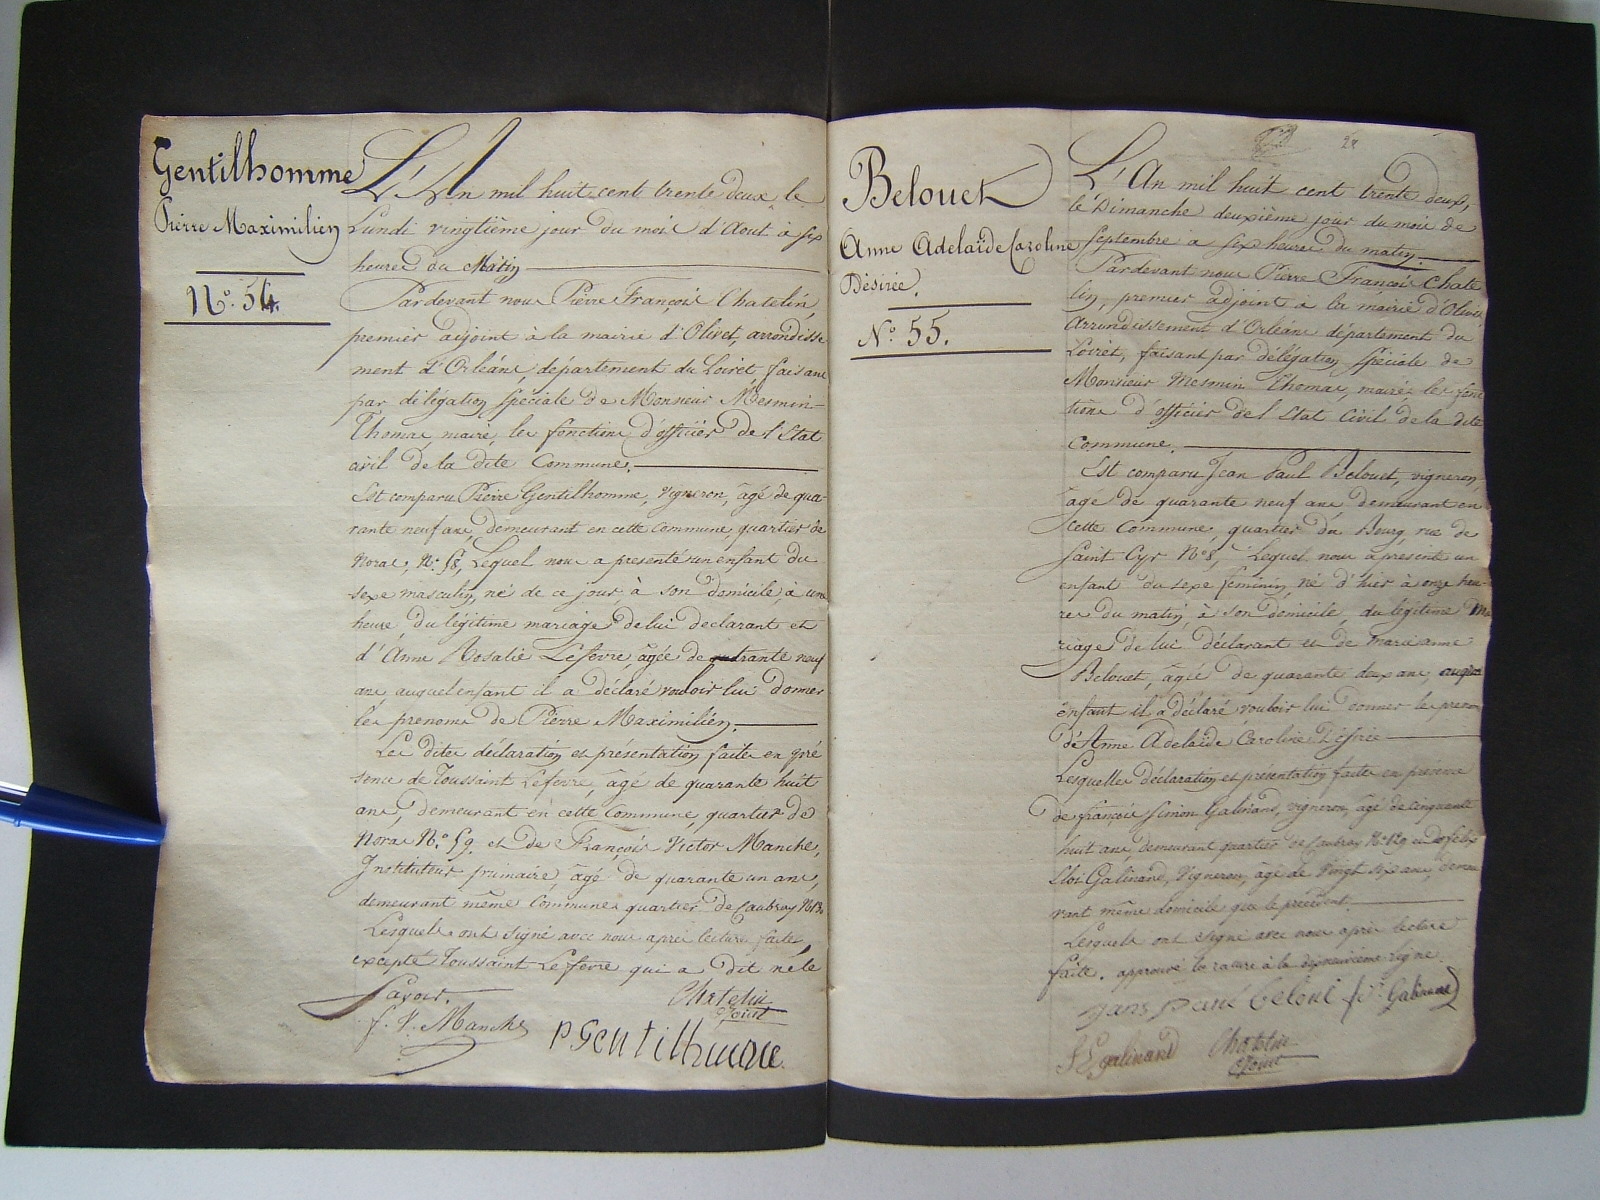 Gentilhomme
Pierre Maximilien
N°. 54.
L'An mil huit cent trente deux, le
Lundi vingtième jour du mois d'Aout à six
heures du Matin
Pardevant nous Pierre François Chatelin,
premier adjoint à la mairie d'Olivet, arrondisse
ment d'Orléans, département du Loiret faisant
par délégation spéciale de Monsieur Mesmin
Thomas, maire, les fonctions d'officier de l'Etat
civil de la dite Commune.
Est comparu Pierre Gentilhomme, vigneron, âgé de qua-
rante neuf ans, demeurant en cette Commune, quartier de
Noras, N°. 58, Lequel nous a présenté un enfant du
sexe masculin, né de ce jour, à son domicile, à une
heure, du légitime mariage de lui déclarant et
d'Anne Rosalie Lefevre, âgée de quarante neuf
ans, auquel enfant il a déclaré vouloir lui donner
les prenoms de Pierre Maximilien.
Les dites déclaration et présentation faites en pré
sence de Toussaint Lefevre, âgé de quarante huit
ans, demeurant en cette Commune, quartier de
Noras N°. 59. et de François Victor Manche,
Instituteur primaire, âgé de quarante un ans,
demeurant même Commune quartier de Caubray
Lesquels ont signé avec nous après lecture faite,
excepté Toussaint Lefevre qui a dit ne le
Savoir.
Chatelin
Ajoint
f. V. Manche
PGentilhomme
Belouet
Anne Adelaïde Caroline
Désirée.
N°. 55.
L'An mil huit cent trente deux,
le Dimanche deuxième jour du mois de
Septembre a six heures du matin.
Pardevant nous Pierre François Chate
lin, premier adjoint à la mairie d'Olivet,
Arrondissement d'Orléans département du
Loiret, faisant par délégation spéciale de
Monsieur Mesmin Thomas, maire, les fonc
tions d'officier de l'Etat Civil de la dite
Commune.
Est comparu Jean Paul Belouet, vigneron,
âgé de quarante neuf ans, demeurant en
cette Commune, quartier du Bourg, rue de
Saint Cyr N°. 8, Lequel nous a présenté un
enfant du sexe féminin, né d'hier à onze heu-
res du matin à son domicile, du légitime ma
riage de lui déclarant et de Marie anne
Belouet, âgée de quarante deux ans, auquel
enfant il a déclaré vouloir lui donner les prenoms
d'Anne Adelaïde Caroline Désirée
Lesquelles déclaration et présentation faites en présence
de françois Simon Galinand, vigneron, âgé de cinquante
huit ans, demeurant quartier de Caubray N°. 129 et de felix
Eloi Galinand, Vigneron, âgé de Vingt six ans, demeu
rant même domicile que le précédent.
Lesquels ont signé avec nous après lecture
faite. approuvé la rature à la dixneuvième ligne.
Galinand
galinand
Chatelin
Ajoint